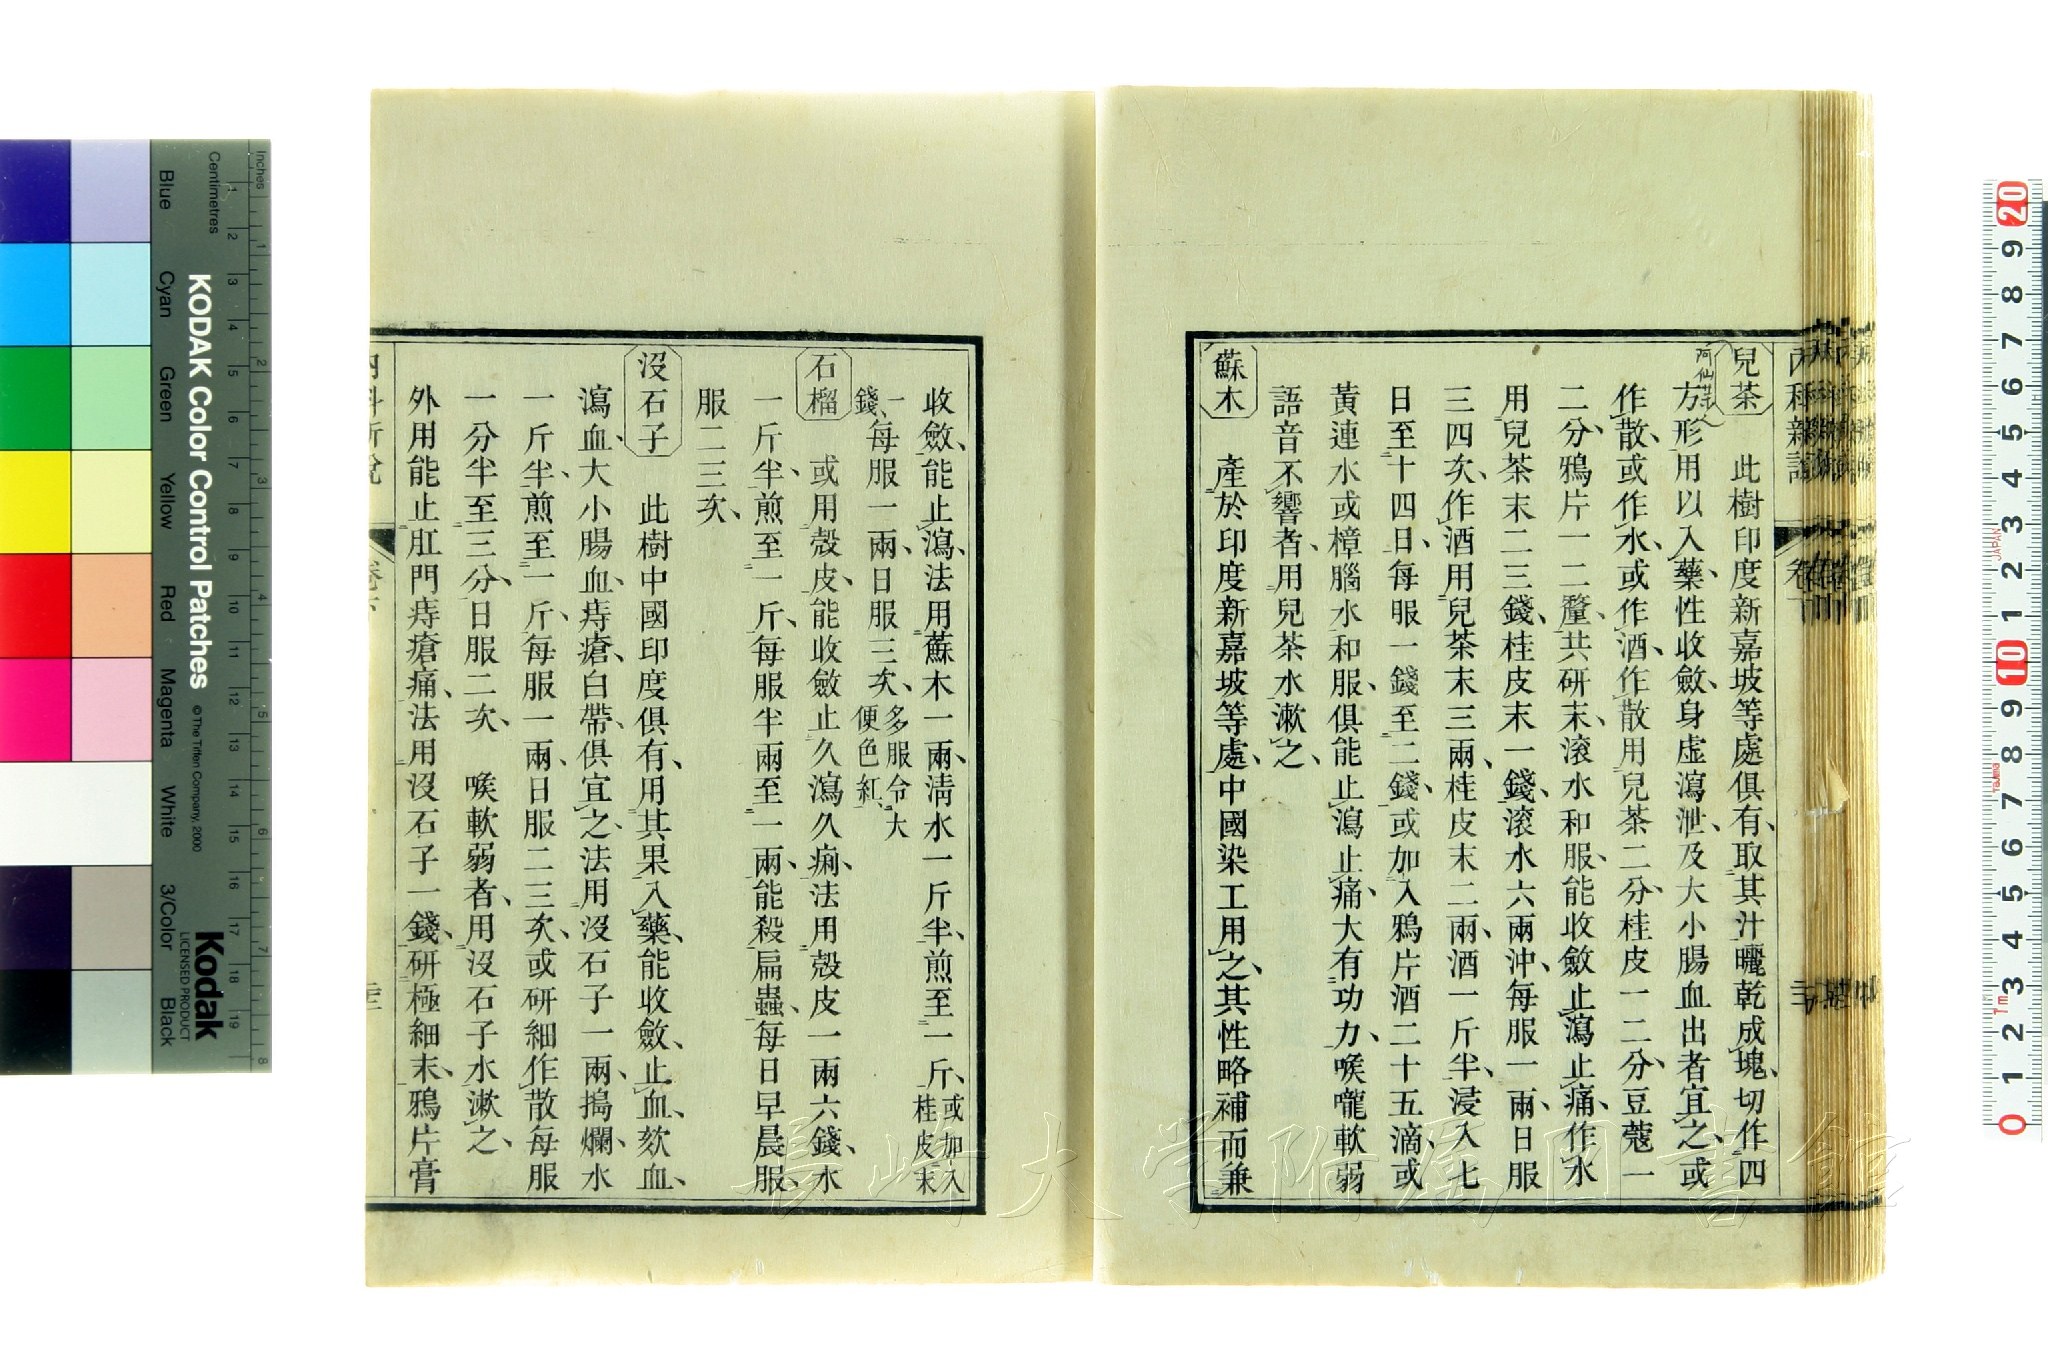 兒茶　此樹印度新嘉坡等處俱有、取其汁曬乾成塊、切作四
方形、用以入藥、性收斂、身虛瀉泄、及大小腸血出者宜之、或
作散、或作水、或作酒、作散用兒茶二分、桂皮一二分、豆蔻一
二分、鴉片一二釐、共研末、滚水和服、能收斂止瀉止痛、作水
用兒茶末二三錢、桂皮末一錢、滚水六兩沖、每服一兩、日服
三四次、作酒用兒茶末三兩、桂皮末二兩、酒一斤半、浸入七
日至十四日、每服一錢至二錢、或加入鴉片酒二十五滴、或
黃連水或樟腦水和服、俱能止瀉止痛、大有功力、喉嚨軟弱
語音不響者、用兒茶水漱之、
蘇木　產於印度新嘉坡等處、中國染工用之、其性略補而兼
收斂、能止瀉、法用蘇木一兩、清水一斤半、煎至一斤、或加入桂皮末
一錢、每服一兩、日服三次、多服令大便色紅、
石榴　或用殼皮、能收斂止久瀉久痢、法用殼皮一兩六錢、水
一斤半、煎至一斤、每服半兩至一兩、能殺扁蟲、每日早晨服、
服二三次、
沒石子　此樹中國印度俱有、用其果入藥、能收斂、止血、欬血、
瀉血、大小腸血、痔瘡、白帶、俱宜之、法用沒石子一兩、搗爛、水
一斤半、煎至一斤、每服一兩、日服二三次、或研細作散每服
一分半至三分、日服二次、　喉軟弱者、用沒石子水漱之、
外用能止肛門痔瘡痛、法用沒石子一錢、研極細末、鴉片膏
KODAK Color Control Patches
© The Tiffen Company, 2000
Kodak
LICENSED PRODUCT
Inches
Centimetres
Blue
Cyan
Green
Yellow
Red
Magenta
White
3/Color
Black
長崎大学附属図書館